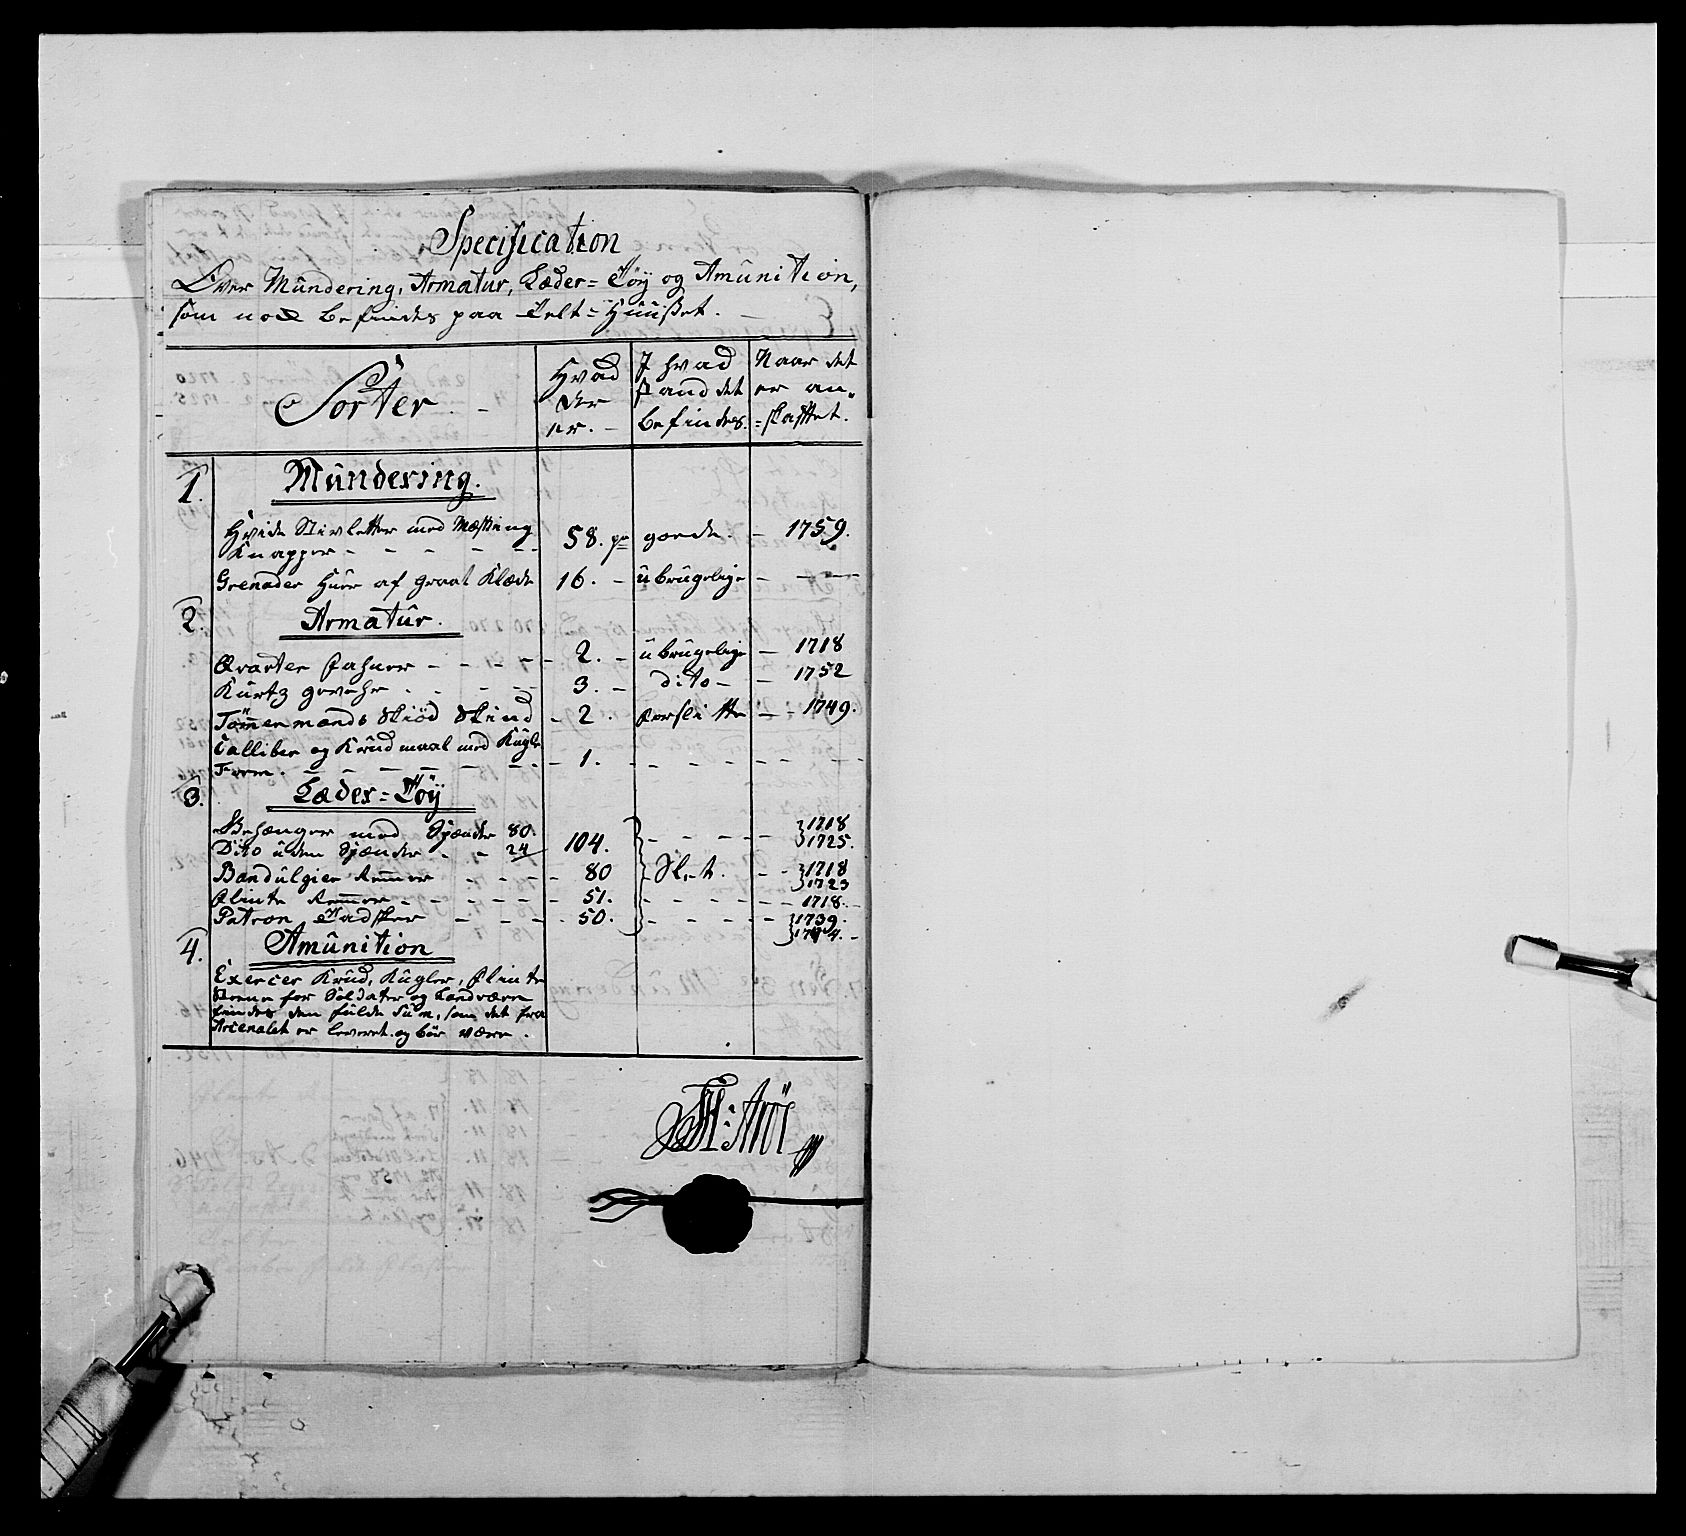 Specification
Over Mündering, Armatur, Læder=Töÿ og Amünition,
som nock befindes paa Telt=Huußet.
Sorter. Hvad der er. J hvad stand det befindes. Naar det er an=skaffet.
1. Mündering.
Hvide Stivletter med Messing
Knapper - - - - - 58. pr goede. - 1759.
Grenader Huer af graat Klæde 16. - übrugelige - - - -
2. Armatur.
Qvarter Fahner - - - - - 2. - übrugelige - 1718
Kürtz gevehr - - - - 3. - dito - - 1752
Tömmermands Skiöd Skind - 2. forslitte - - 1749.
Calliber og Krüdmaal med Kügle
Form. - - - - - - - 1. - - - - - - -
3. Læder=Töÿ
Gehænger med Spænder 80.
Dito uden Spænder - - 24 104. - - - - - 1718 1725.
Bandülgier Remmer - - - - 80 Slet. - - 1718 1723
Flinte Remmer - - - - - - 51. - - - - - - 1718.
Patron Tadsker - - - - 50. - - - - - 1739.
4. Amünition
Exercer Krüd, Kügler, Flinte
Steene for Soldater og Landværn
findes den fülde Süm, som det fra
Arsenalet er leveret og bör være.